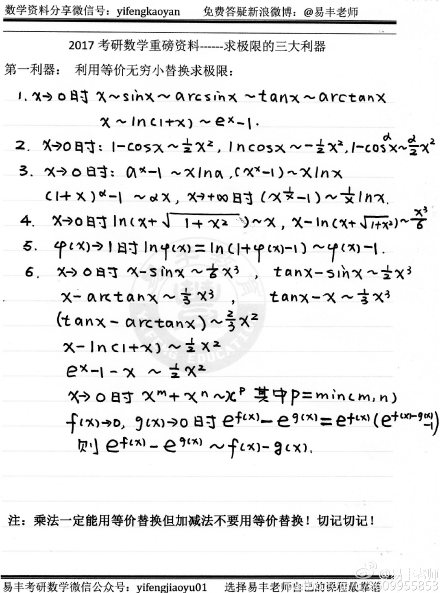 数学资料分享微信号：yifengkaoyan 免费答疑新浪微博：@易丰老师
2017 考研数学重磅资料------求极限的三大利器
第一利器： 利用等价无穷小替换求极限：
1. x→0时 x~sinx~arcsinx~tanx~arctanx
x~ln(1+x)~eˣ-1.
2. x→0时: 1-cosx~½x², lncosx~-½x², 1-cos^α x~α/2 x²
3. x→0时: aˣ-1~xlna, (xˣ-1)~xlnx
(1+x)^α-1~αx, x→+∞时 (x^(1/x)-1)~1/x lnx.
4. x→0时 ln(x+√(1+x²))~x, x-ln(x+√(1+x²))~x³/6
5. φ(x)→1时 lnφ(x)=ln(1+φ(x)-1)~φ(x)-1.
6. x→0时 x-sinx~1/6 x³, tanx-sinx~½x³
x-arctanx~⅓x³, tanx-x~⅓x³
(tanx-arctanx)~⅔x²
x-ln(1+x)~½x²
eˣ-1-x~½x²
x→0时 x^m+x^n~x^p 其中p=min(m,n)
f(x)→0, g(x)→0时 e^f(x)-e^g(x)=e^f(x)(e^(f(x)-g(x))-1)
则 e^f(x)-e^g(x)~f(x)-g(x).
注：乘法一定能用等价替换但加减法不要用等价替换！切记切记！
易丰考研数学微信公众号：yifengjiaoyu01 选择易丰老师自己的课程最靠谱